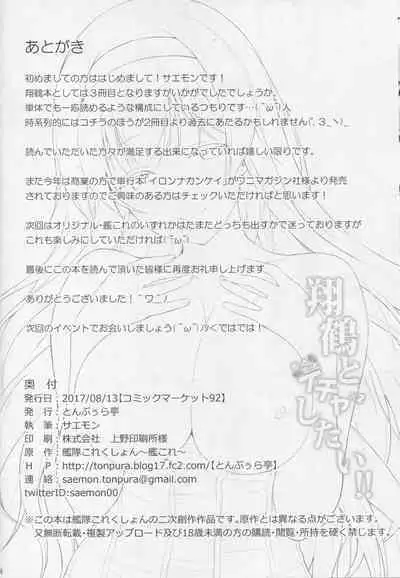 あとがき
初めましての方ははじめまして！サエモンです！
翔鶴本としては３冊目となりますがいかがでしたでしょうか。
単体でも一応読めるような構成にしているつもりです…(´ω`)人
時系列的にはコチラのほうが２冊目より過去にあたるかもしれません(´.３_ヽ)_
読んでいただいた方々が満足する出来になっていれば嬉しい限りです。
また今年は商業の方で単行本「イロンナカンケイ」がワニマガジン社様より発売
されておりますのでご興味のある方はチェックいただければと思います！
次回はオリジナル・艦これのいずれかはたまたどっちも出すかで迷っておりますが
これも楽しみにしていただければ(´ω`)
最後にこの本を読んで頂いた皆様に再度お礼申し上げます。
ありがとうございました！ˆワˆ_)
次回のイベントでお会いしましょう(´ω`)ﾉｼ<ではでは！
翔鶴と
イチャ
したい!!
奥 付
発行日：2017/08/13【コミックマーケット92】
発 行：とんぷぅら亭
執 筆：サエモン
印 刷：株式会社 上野印刷所様
原 作：艦隊これくしょん～艦これ～
Ｈ Ｐ：http://tonpura.blog17.fc2.com/【とんぷぅら亭】
連 絡：saemon.tonpura@gmail.com
twitterID:saemon00
※この本は艦隊これくしょんの二次創作作品です。原作とは異なる点がございます。
又無断転載・複製アップロード及び18歳未満の方の購読・閲覧・所持を硬く禁じます。